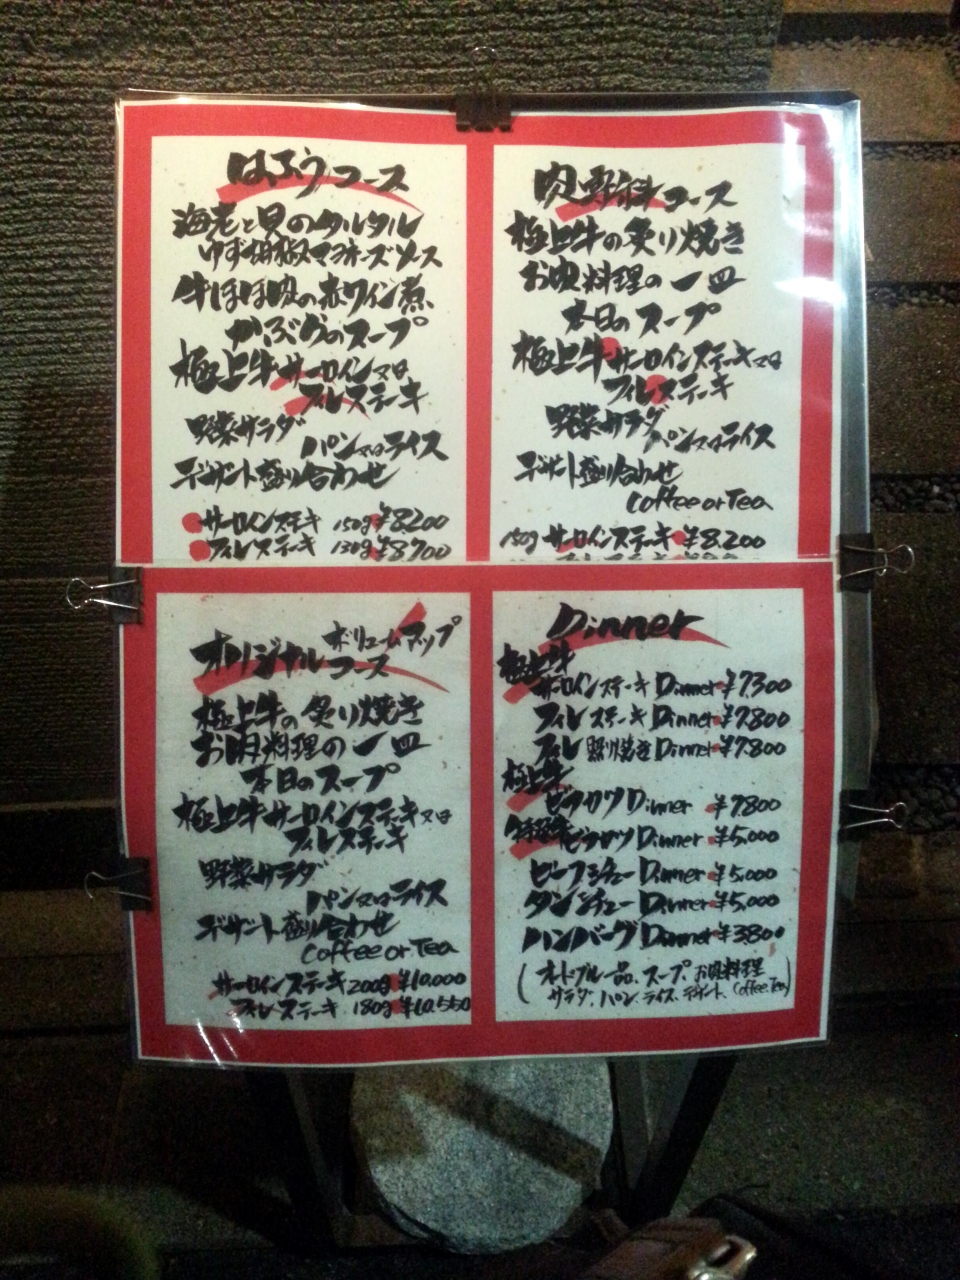 はふうコース
海老と貝のタルタル
ゆず胡椒マヨネーズソース
牛ほほ肉の赤ワイン煮
かぶらのスープ
極上牛サーロイン又は
フィレステーキ
野菜サラダ
パン又はライス
デザート盛り合わせ
サーロインステーキ 150g ¥8200
フィレステーキ 130g ¥8700
肉専科コース
極上牛の炙り焼き
お肉料理の一皿
本日のスープ
極上牛サーロインステーキ又は
フィレステーキ
野菜サラダ
パン又はライス
デザート盛り合わせ
Coffee or Tea
150g サーロインステーキ ¥8,200
オリジナル ボリュームアップ
コース
極上牛の炙り焼き
お肉料理の一皿
本日のスープ
極上牛サーロインステーキ又は
フィレステーキ
野菜サラダ
パン又はライス
デザート盛り合わせ
Coffee or Tea
サーロインステーキ 200g ¥10,000
フィレステーキ 180g ¥10,550
Dinner
極上牛
サーロインステーキ Dinner ¥7300
フィレステーキ Dinner ¥7800
フィレ照り焼き Dinner ¥7800
極上牛
ビフカツ Dinner ¥7800
特選牛ビフカツ Dinner ¥5,000
ビーフシチュー Dinner ¥5,000
タンシチュー Dinner ¥5,000
ハンバーグ Dinner ¥3800
(オードブル一品、スープ、お肉料理
サラダ、パン、ライス、デザート、Coffee, Tea)